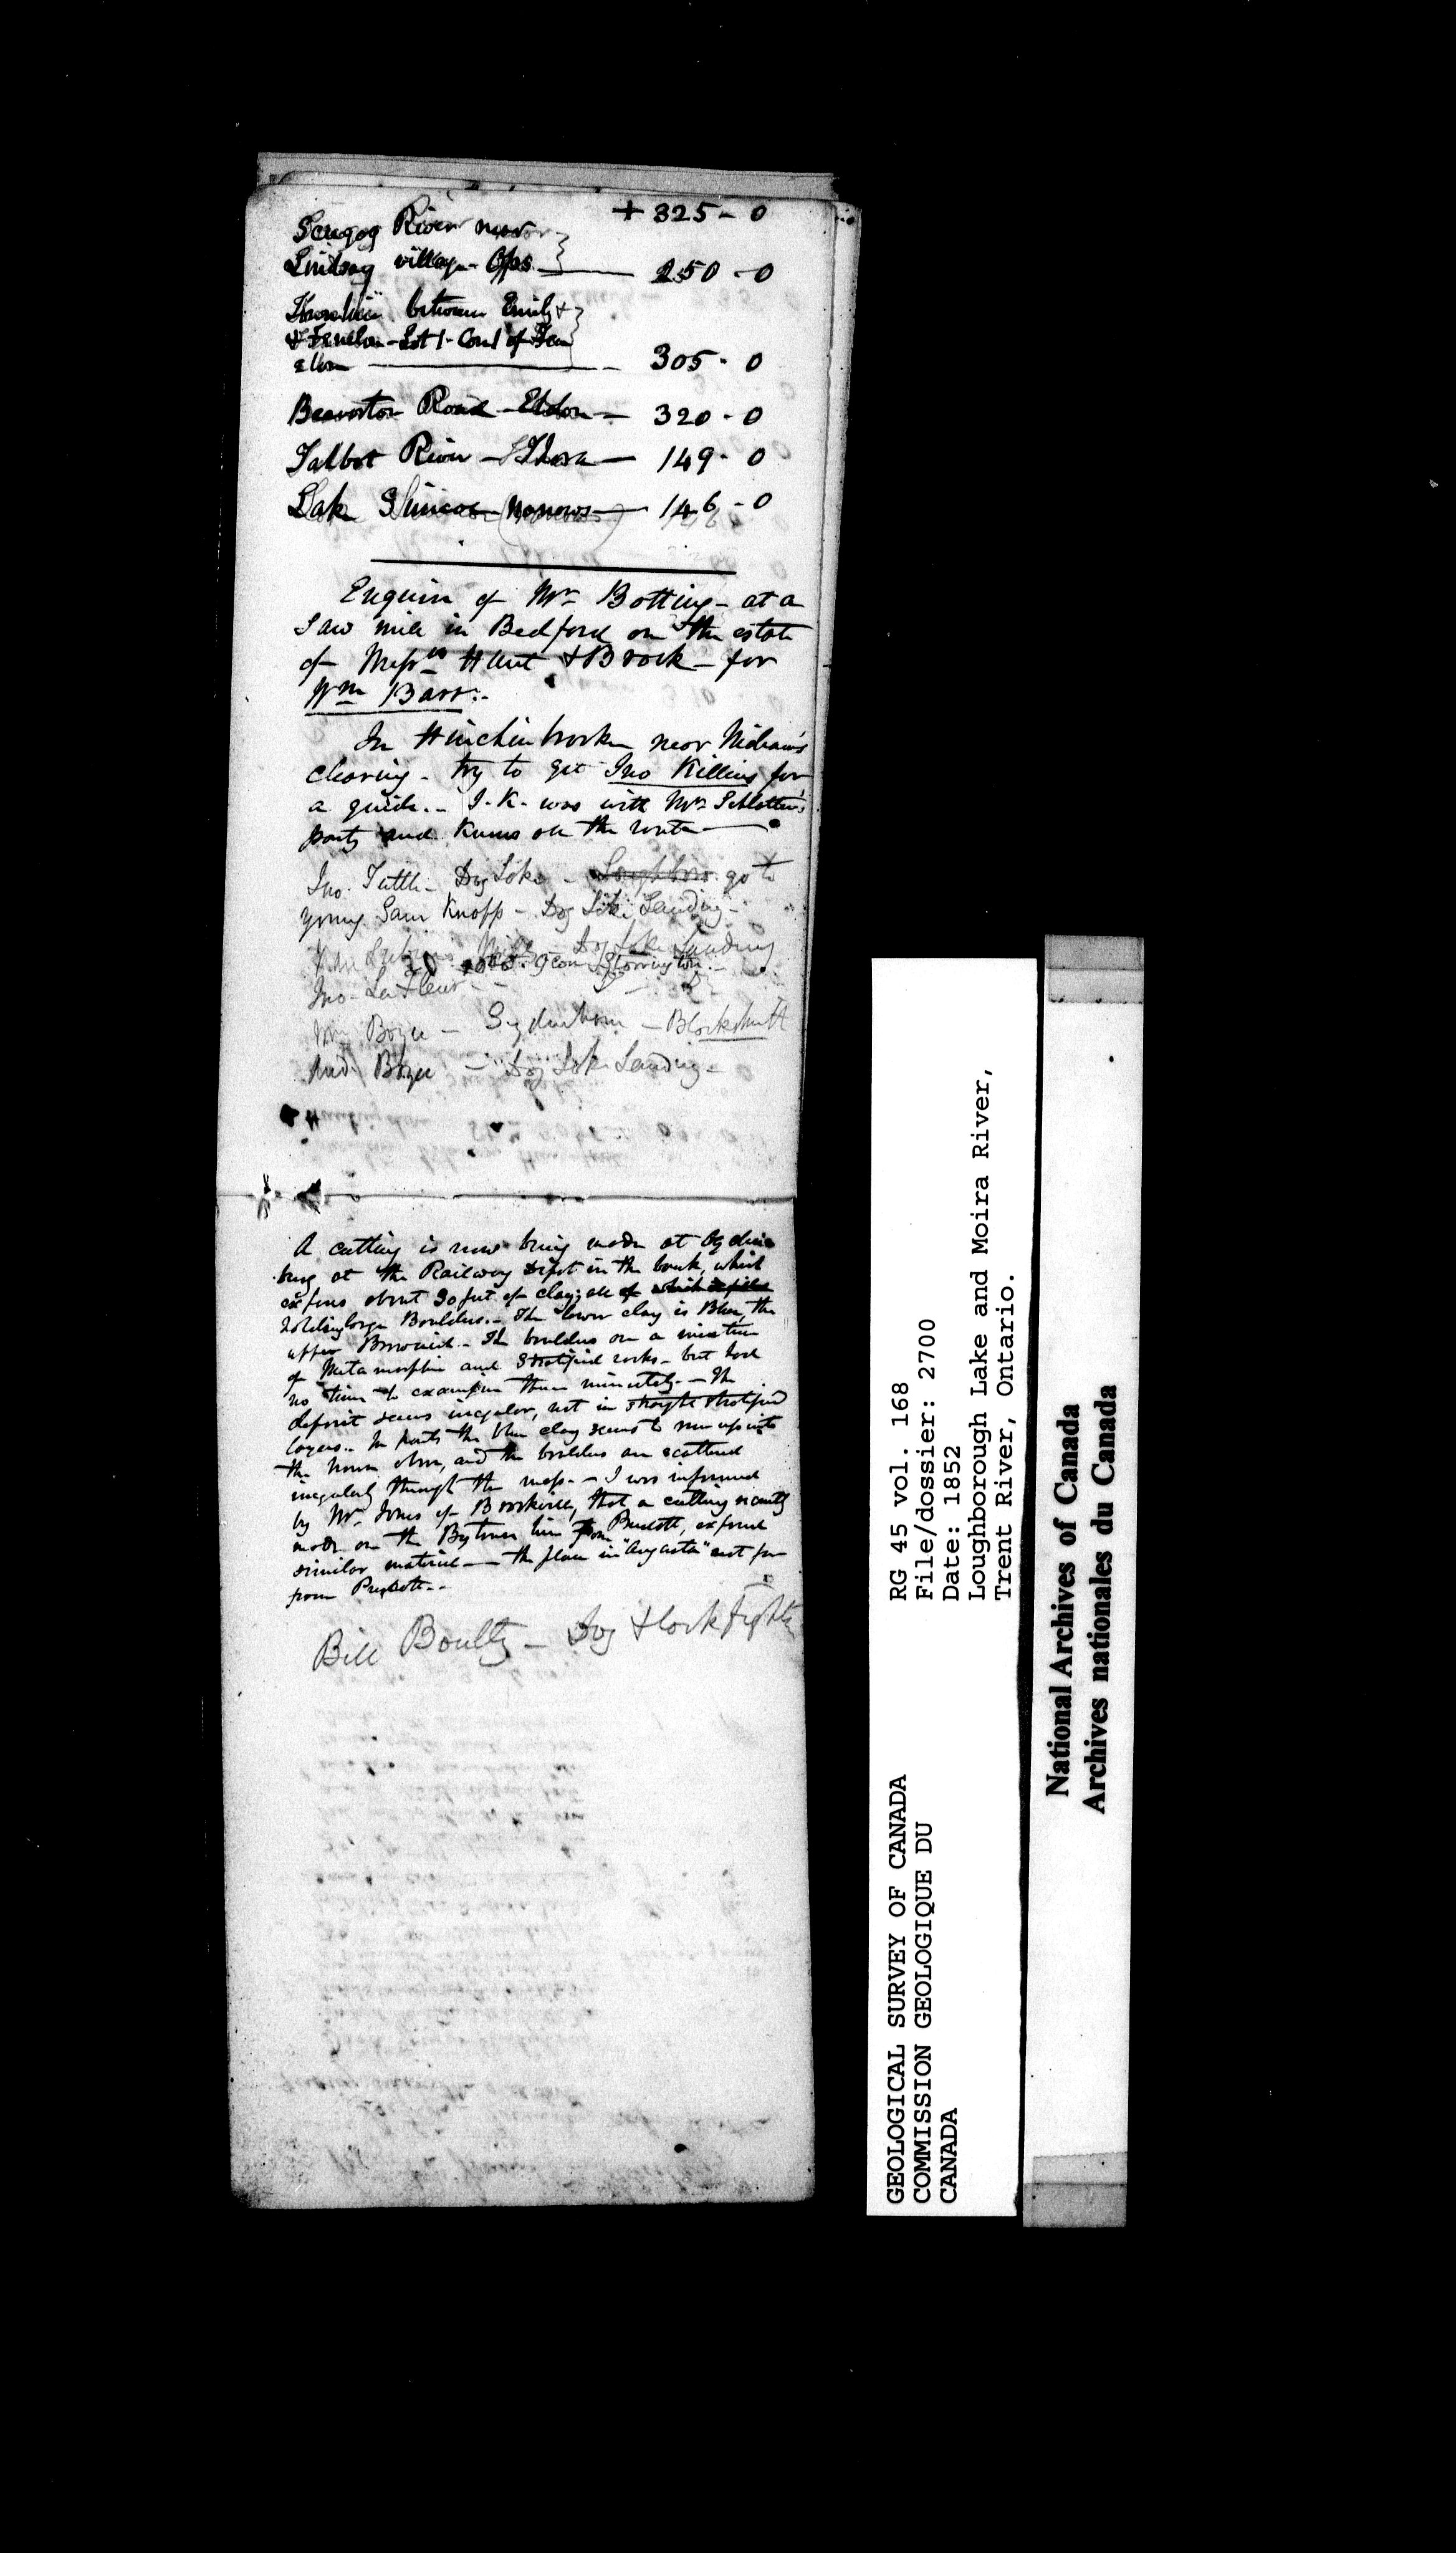 + 325 - 0
Scugog River near
Lindsay village - Ops — 250 - 0
Townline between Emily &
& Fenelon - Lot 1 - Con 1 of Fen
elon — 305 - 0
Beaverton Road - Eldon — 320 - 0
Talbot River - Thora — 149 - 0
Lake Simcoe (Narrows) — 146 - 0
Enquire of Mr Botting - at a
Saw mill in Bedford on the estate
of Messrs & Brock - for
Wm Barr:-
In Hinchinbrooke near
clearing - try to get Jno Killins for
a guide.- J.K. was with Mr
party and knows all the route —
Jno. Tuttle - Dog Lake - Loughboro go to
young Sam Knapp - Dog Lake Landing -
Mills - Dog Lake Landing
9 con Storrington -
Jno - La Fleur -
Wm Boyce - Sydenham -
And. Boyce - Dog Lake Landing -
A cutting is now being made at Ogdens
burg at the Railway Depot in the bank, which
expose about 30 feet of clay; all of which
holding large Boulders.- The lower clay is Blue, the
upper Brownish - The boulders are a mixture
of Metamorphic and Stratified rocks - but had
no time to examine them minutely.- The
deposit seems irregular, not in straight stratified
layers.. In parts the blue clay seems to run up into
the brown above, and the boulders are scattered
irregularly through the mass. - I was informed
by Mr. Jones of Brockville, that a cutting recently
made on the Bytown line from Prescott, exposed
similar material — the place in "Augusta" not far
from Prescott.-
Bill Boulty - Dog & Cock Fighter
GEOLOGICAL SURVEY OF CANADA
COMMISSION GEOLOGIQUE DU
CANADA
RG 45 vol. 168
File/dossier: 2700
Date: 1852
Loughborough Lake and Moira River,
Trent River, Ontario.
National Archives of Canada
Archives nationales du Canada